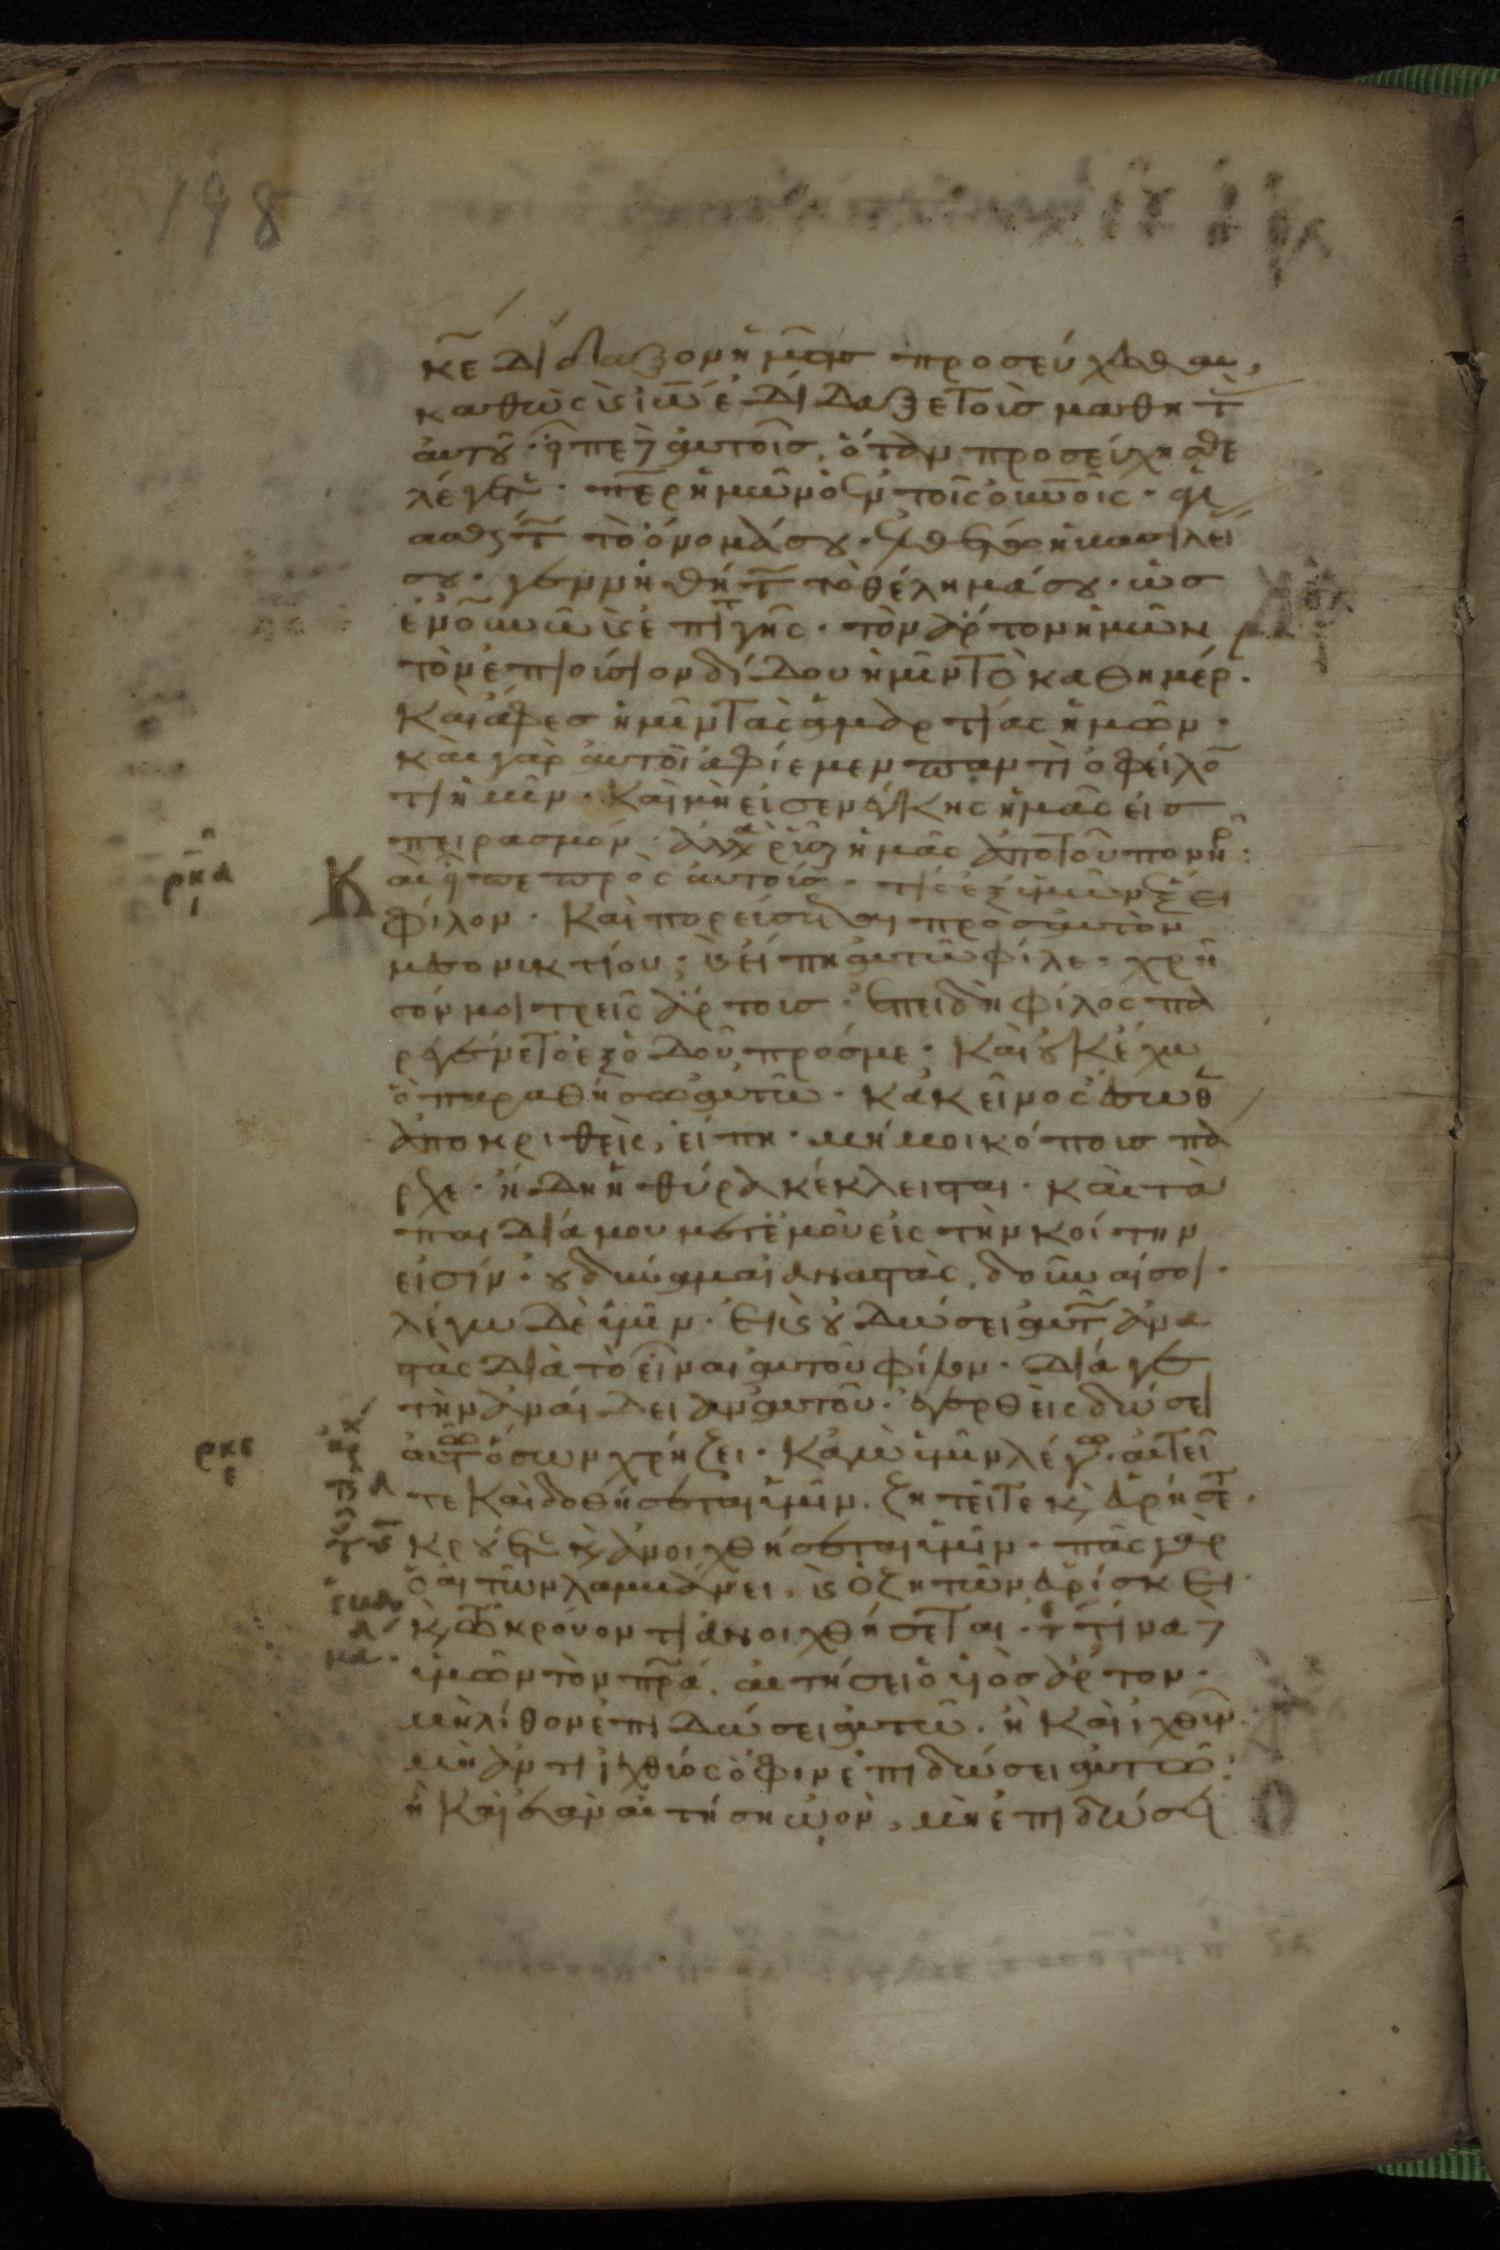 198
κε διδαξον ημας προσευχεσθαι,
καθως κ ιω εδιδαξε τοις μαθητ
αυτου · ειπε δε αυτοις, όταν προσεύχησθε
λέγετε · περ ημων ο εν τοις ουνοις · αγι
ασθητ τὸ όνομά σου · ελθετω η βασιλεί
σου · γεννηθήτ τὸ θέλημά σου · ὡς
ἐν ουνω κ ἐπι τ γῆς · τὸν ἄρτον ἡμῶν
τὸν ἐπιούσιον δίδου ἡμῖν τὸ καθημέρ ·
Καὶ άφες ἡμῖν τὰς ἁμαρτίας ἡμῶν ·
καὶ γὰρ αὐτοὶ αφίεμεν παντὶ ὀφείλο
τι ἡμῖν · Καὶ μὴ εἰσενέγκης ἡμᾶς εἰς
πειρασμόν · ἀλλὰ ρῦσαι ἡμᾶς ἀπὸ τοῦ πονηρ :
ρηα
ι
Καὶ εἶπε πρὸς αὐτούς · τίς ἐξ ὑμῶν ἕξει
φίλον · Καὶ πορεύσεται πρὸς αὐτὸν
μεσονυκτίου · κ εἴπη αὐτῶ φίλε · χρῆ
σόν μοι τρεῖς ἄρτους · ἐπειδὴ φίλος πα
ρεγένετο ἐξ ὁδοῦ πρός με · Καὶ οὐκ ἔχω
ὃ παραθήσω αὐτῶ · κἀκεῖνος ἔσωθ
ἀποκριθεὶς, εἴπη · μή μοι κόπους πά
ρεχε · ἤδη ἡ θύρα κέκλεισται · καὶ τὰ
παιδία μου μετ ἐμοῦ εἰς τὴν κοίτην
εἰσίν · οὐ δύναμαι ἀναστὰς, δοῦναί σοι ·
λέγω δὲ ὑμῖν · Εἰ κ οὐ δώσει αὐτ ἀνα
στὰς διὰ τὸ εἶναι αὐτοῦ φίλον · διά γε
τὴν ἀναίδειαν αὐτοῦ · ἐγερθεὶς δώσει
ρκε
ε
αὐτῶ ὅσων χρήζει · Κἀγὼ ὑμῖν λέγω · αἰτεῖ
τε Καὶ δοθήσεται ὑμῖν. ζητεῖτε κ εὑρήσετ ·
κρούετε κ ἀνοιχθήσεται ὑμῖν · πᾶς γὰρ
ὁ αἰτῶν λαμβάνει, κ ὁ ζητῶν εὑρίσκει ·
κ τῶ κρούοντι ἀνοιχθήσεται · τίνα δὲ
ὑμῶν τὸν πρα, αἰτήσει ὁ υἱὸς ἄρτον ·
μὴ λίθον ἐπιδώσει αὐτῶ · ἢ Καὶ ἰχθὺν
μὴ ἀντὶ ἰχθύος ὄφιν ἐπιδώσει αὐτῶ :
ἢ Καὶ ἐὰν αἰτήση ὠόν, μὴ ἐπιδώσει